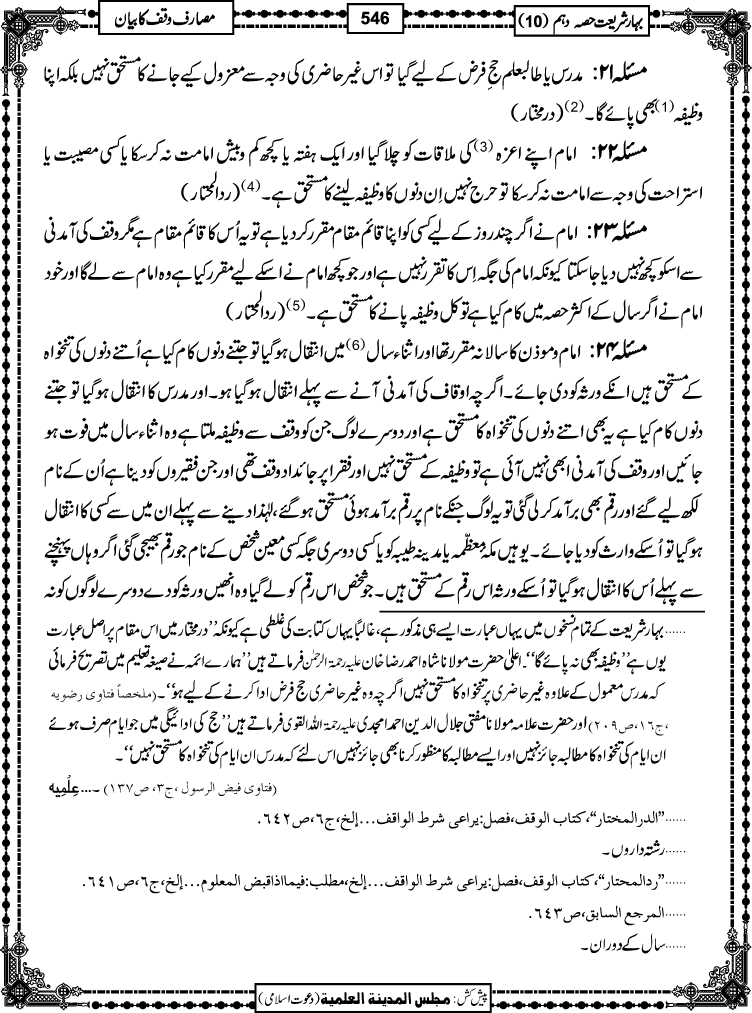 بہارِ شریعت حصہ دہم (10)
546
مصارف وقف کا بیان
مسئلہ ۲۱: مدرس یا طالبعلم حجِ فرض کے لیے گیا تو اس غیر حاضری کی وجہ سے معزول کیے جانے کا مستحق نہیں بلکہ اپنا
وظیفہ(1) بھی پائے گا۔(2) (درمختار)
مسئلہ ۲۲: امام اپنے اعزہ(3) کی ملاقات کو چلا گیا اور ایک ہفتہ یا کچھ کم وبیش امامت نہ کرسکا یا کسی مصیبت یا
استراحت کی وجہ سے امامت نہ کرسکا تو حرج نہیں اِن دنوں کا وظیفہ لینے کا مستحق ہے۔(4) (ردالمحتار)
مسئلہ ۲۳: امام نے اگر چند روز کے لیے کسی کو اپنا قائم مقام مقرر کردیا ہے تو یہ اُس کا قائم مقام ہے مگر وقف کی آمدنی
سے اسکو کچھ نہیں دیا جاسکتا کیونکہ امام کی جگہ اِس کا تقرر نہیں ہے اور جو کچھ امام نے اسکے لیے مقرر کیا ہے وہ امام سے لے گا اور خود
امام نے اگر سال کے اکثر حصہ میں کام کیا ہے تو کل وظیفہ پانے کا مستحق ہے۔(5) (ردالمحتار)
مسئلہ ۲۴: امام وموذن کا سالانہ مقرر تھا اور اثناء سال(6) میں انتقال ہوگیا تو جتنے دنوں کام کیا ہے اُتنے دنوں کی تنخواہ
کے مستحق ہیں انکے ورثہ کو دی جائے۔ اگرچہ اوقاف کی آمدنی آنے سے پہلے انتقال ہوگیا ہو۔ اور مدرس کا انتقال ہوگیا تو جتنے
دنوں کام کیا ہے یہ بھی اتنے دنوں کی تنخواہ کا مستحق ہے اور دوسرے لوگ جن کو وقف سے وظیفہ ملتا ہے وہ اثناء سال میں فوت ہو
جائیں اور وقف کی آمدنی ابھی نہیں آئی ہے تو وظیفہ کے مستحق نہیں اور فقرا پر جائداد وقف تھی اور جن فقیروں کو دینا ہے اُن کے نام
لکھ لیے گئے اور رقم بھی برآمد کرلی گئی تو یہ لوگ جنکے نام پر رقم برآمد ہوئی مستحق ہوگئے، لہٰذا دینے سے پہلے ان میں سے کسی کا انتقال
ہوگیا تو اُسکے وارث کو دیا جائے۔ یوہیں مکۂ معظّمہ یا مدینہ طیبہ کو یا کسی دوسری جگہ کسی معین شخص کے نام جو رقم بھیجی گئی اگر وہاں پہنچنے
سے پہلے اُس کا انتقال ہوگیا تو اُسکے ورثہ اس رقم کے مستحق ہیں۔ جو شخص اس رقم کو لے گیا وہ انھیں ورثہ کو دے دوسرے لوگوں کو نہ
......بہار شریعت کے تمام نسخوں میں یہاں عبارت ایسے ہی مذکور ہے، غالبًا یہاں کتابت کی غلطی ہے کیونکہ ''درمختار میں اس مقام پر اصل عبارت
یوں ہے ''وظیفہ بھی نہ پائے گا''۔ اعلیٰ حضرت مولانا شاہ احمد رضا خان علیہ رحمۃ الرحمٰن فرماتے ہیں ''ہمارے ائمہ نے صیغہ تعلیم میں تصریح فرمائی
کہ مدرس معمول کے علاوہ غیر حاضری پر تنخواہ کا مستحق نہیں اگرچہ وہ غیر حاضری حج فرض ادا کرنے کے لیے ہو''۔ (ملخصاً فتاوی رضویہ
،ج۱۶،ص۲۰۹) اور حضرت علامہ مولانا مفتی جلال الدین احمد امجدی علیہ رحمۃ اللہ القوی فرماتے ہیں ''حج کی ادائیگی میں جو ایام صرف ہوئے
ان ایام کی تنخواہ کا مطالبہ جائز نہیں اور ایسے مطالبہ کا منظور کرنا بھی جائز نہیں اس لئے کہ مدرس ان ایام کی تنخواہ کا مستحق نہیں''۔
(فتاوی فیض الرسول ،ج۳، ص۱۳۷) ۔...عِلْمِیه
......''الدرالمختار''،کتاب الوقف،فصل:یراعی شرط الواقف...إلخ،ج۶،ص۶۴۲.
......رشتہ داروں۔
......''ردالمحتار''،کتاب الوقف،فصل:یراعی شرط الواقف...إلخ،مطلب:فیما اذا قبض المعلوم...إلخ،ج۶،ص۶۴۱.
......المرجع السابق،ص۶۴۳.
......سال کے دوران۔
پیش کش: مجلس المدینة العلمیة (دعوت اسلامی)